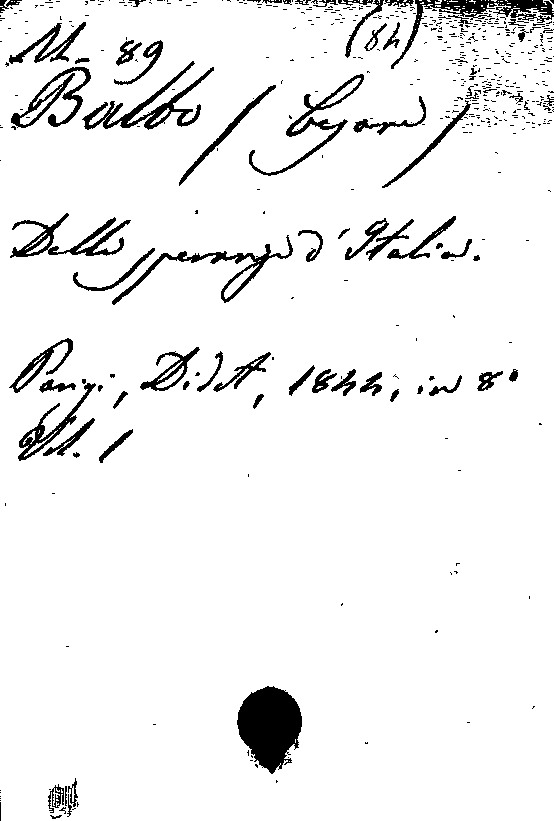 M- 89 (84)
Balbo / Cesare /
Delle speranze d'Italia.
Parigi, Didot, 1844, in 8°
Vol. 1